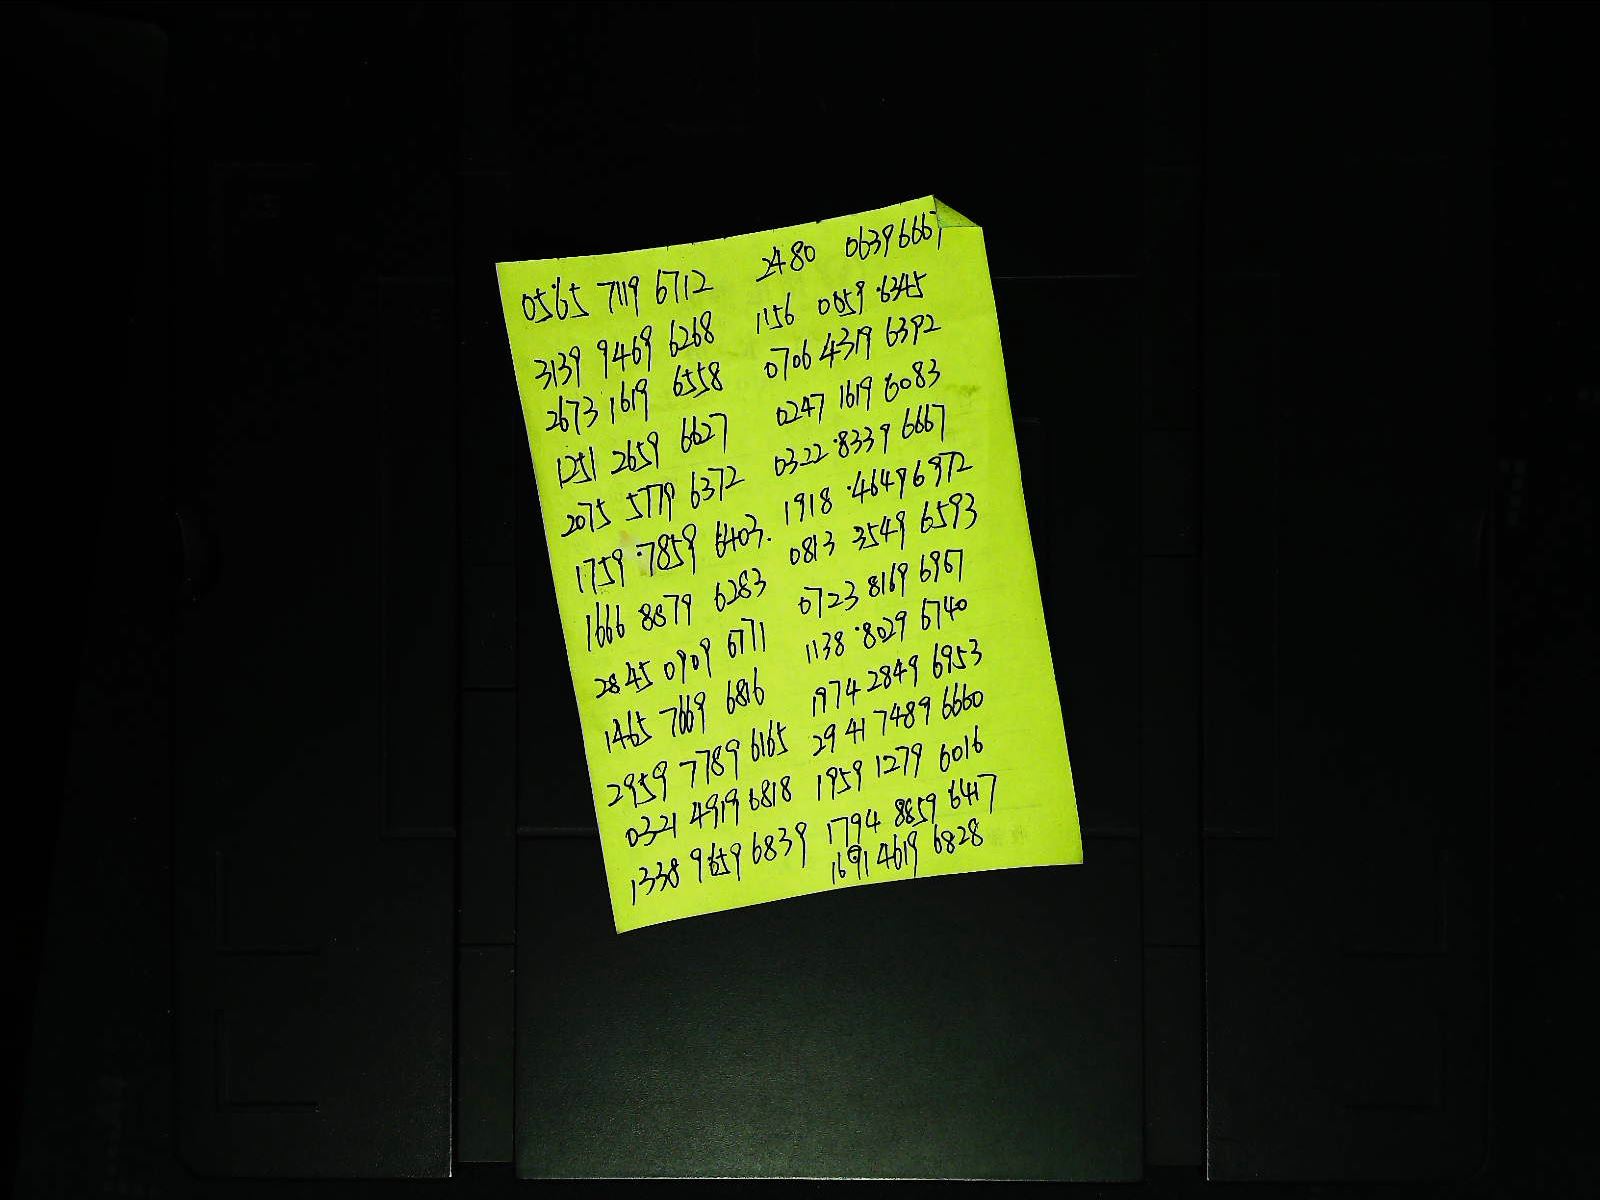 0565 7119 6712 2480 0639 6667
3139 9469 6268 1156 0059 6345
2673 1619 6558 0706 4319 6392
1251 2659 6627 0247 1619 6083
2075 5779 6372 0322 8339 6667
1759 7859 6403 1918 4649 6972
1666 8879 6283 0813 3549 6593
2845 0909 6771 0723 8169 6967
1465 7669 6816 1138 8029 6740
2959 7789 6165 1974 2849 6953
0321 4919 6818 2941 7489 6660
1338 9659 6839 1959 1279 6016
1794 8859 6417
1691 4619 6828